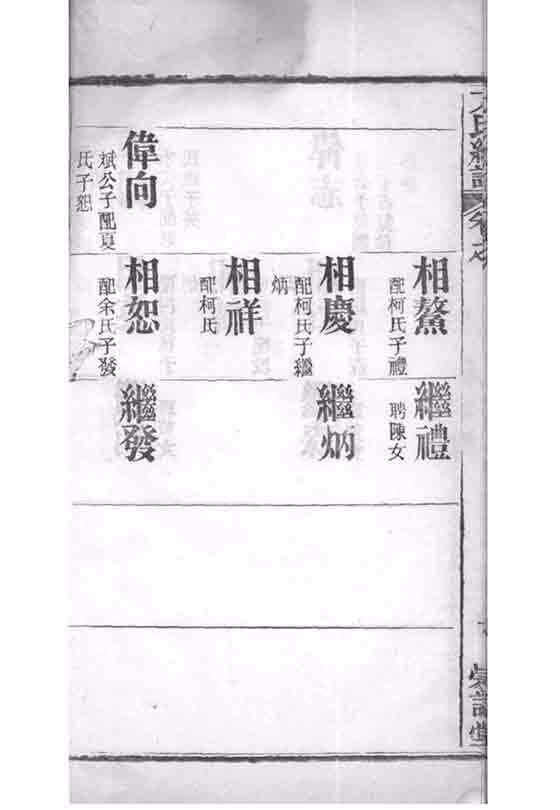 氏續譜
相鰲
配柯氏子禮
相慶
配柯氏子繼
炳
相祥
配柯氏
偉向
斌公子配夏
氏子恕
相恕
配余氏子發
繼禮
聘陳女
繼炳
繼發